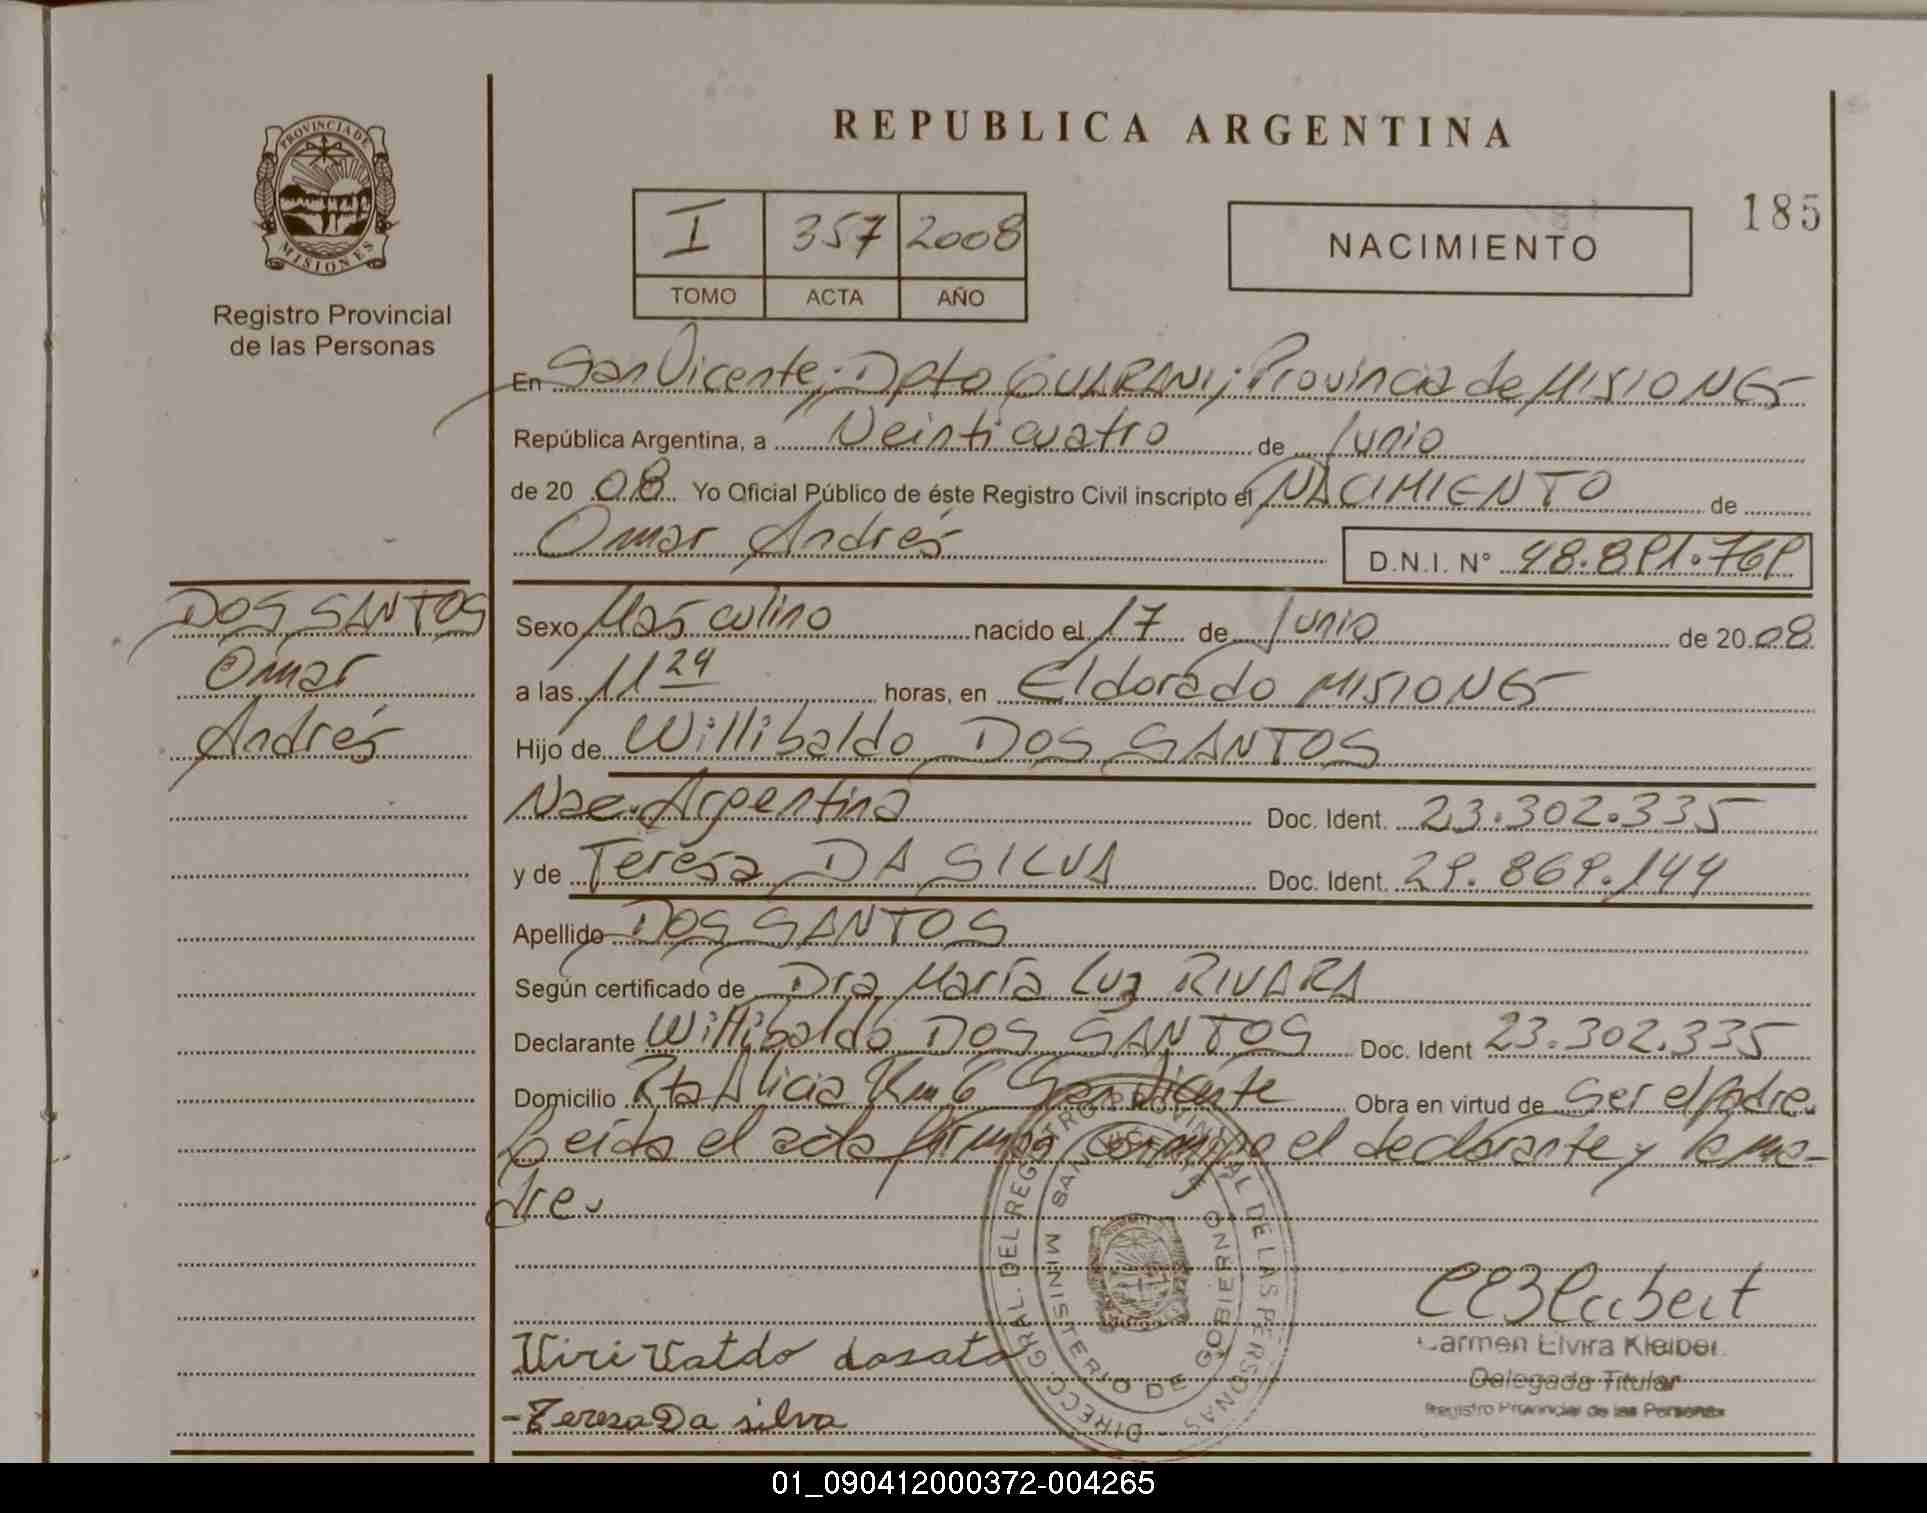 PROVINCIA DE
MISIONES
Registro Provincial
de las Personas
REPUBLICA ARGENTINA
185
I 357 2008
TOMO ACTA AÑO
NACIMIENTO
En San Vicente; Dpto GUARANI; Provincia de MISIONES
República Argentina, a Veinticuatro de Junio
de 20 08 Yo Oficial Público de éste Registro Civil inscripto el NACIMIENTO de
Omar Andrés D.N.I. N° 48.891.769
DOS SANTOS
Omar
Andrés
Sexo Masculino nacido el 17 de Junio de 20 08
a las 11 24 horas, en Eldorado MISIONES
Hijo de Willibaldo DOS SANTOS
Nac. Argentina Doc. Ident. 23.302.335
y de Teresa DA SILVA Doc. Ident. 29.869.144
Apellido DOS SANTOS
Según certificado de Dra María Luz RIVARA
Declarante Willibaldo DOS SANTOS Doc. Ident 23.302.335
Domicilio Rta Alicia Km 6 San Vicente Obra en virtud de Ser el padre.
Leída el acta firman conmigo el declarante y la ma-
dre.
DIRECC. GRAL. DEL REGISTRO PROVINCIAL DE LAS PERSONAS
MINISTERIO DE GOBIERNO
SAN VICENTE
Carmen Elvira Kleiber
Delegada Titular
Registro Provincial de las Personas
- Teresa Da silva
01_090412000372-004265